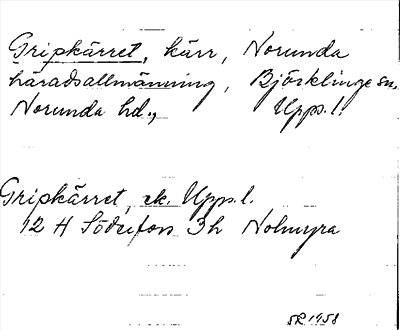 Gripkärret, kärr, Norunda
häradsallmänning, Björklinge sn,
Norunda hd., Upps. l.
Gripkärret, ek. Upps. l.
12 H Söderfors 3h Nolmyra
SR 1958